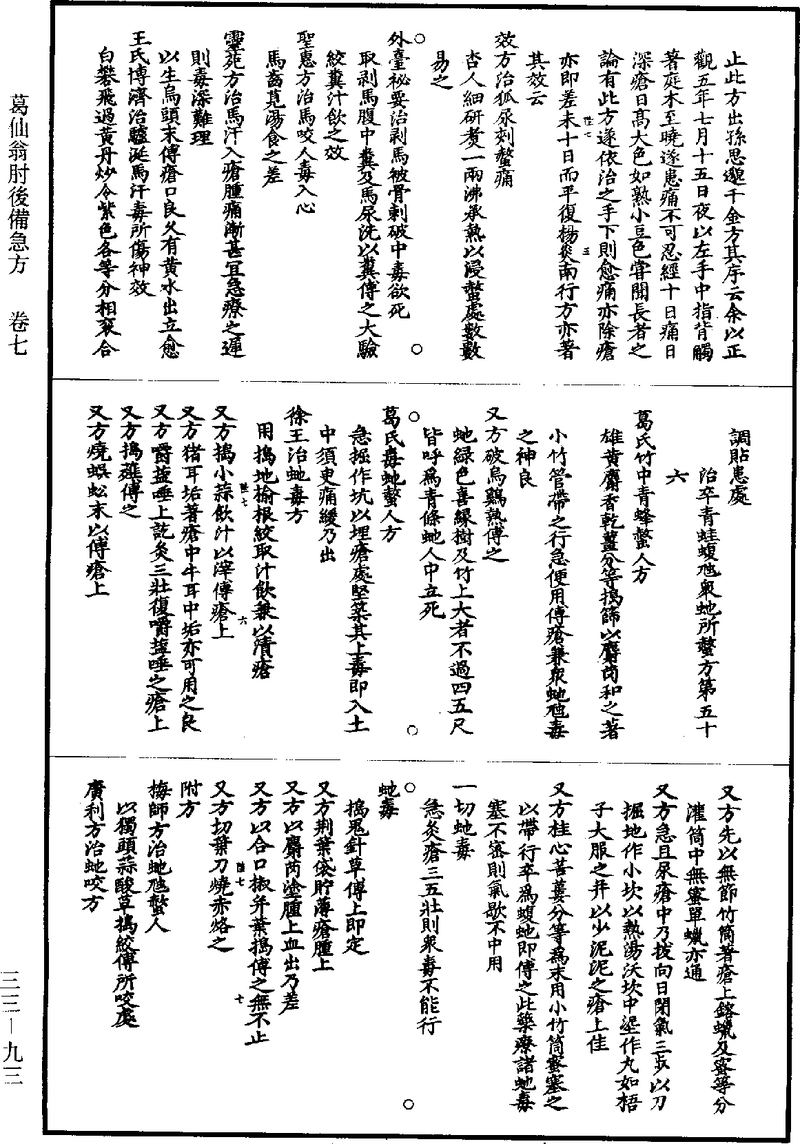 葛仙翁肘後備急方　卷七
三三—九三
止此方出孫思邈千金方其序云余以正
觀五年七月十五日夜以左手中指背觸
著庭木至曉遂患痛不可忍經十日痛日
深瘡日高大色如熟小豆色甞聞長者之
論有此方遂依治之手下則愈痛亦除瘡
亦即差未十日而平復楊炎南行方亦著
其效云
效方治狐尿刾螫痛
杏人細研煑一兩沸承熱以浸螫處數數
易之
外臺祕要治剥馬被骨剌破中毒欲死
取剥馬腹中糞及馬尿洗以糞傅之大驗
絞糞汁飲之效
聖惠方治馬咬人毒入心
馬齒莧湯食之差
靈苑方治馬汗入瘡腫痛漸甚宜急療之遲
則毒深難理
以生烏頭末傅瘡口良久有黃水出立愈
王氏博濟治驢涎馬汗毒所傷神效
白礬飛過黃丹炒令紫色各等分相衮合
調貼患處
治卒青蛙蝮虺衆虵所螫方第五十
六
葛氏竹中青蜂螫人方
雄黃麝香乾薑分等搗篩以麝茵和之著
小竹管帶之行急便用傅瘡兼衆虵虺毒
之神良
又方破烏鷄熱傅之
虵綠色喜緣樹及竹上大者不過四五尺
皆呼爲青條虵人中立死
葛氏毒虵螫人方
急掘作坑以埋瘡處堅築其上毒即入土
中須臾痛緩乃出
徐王治虵毒方
用搗地榆根絞取汁飲兼以漬瘡
又方搗小蒜飲汁以滓傅瘡上
又方猪耳垢著瘡中牛耳中垢亦可用之良
又方嚼鹽唾上訖灸三壯復嚼鹽唾之瘡上
又方搗薤傅之
又方燒蜈蚣末以傅瘡上
又方先以無節竹筒著瘡上鎔蠟及蜜等分
灌筒中無蜜單蠟亦通
又方急且尿瘡中乃拔向日閉氣三步以刀
掘地作小坎以熱湯沃坎中埿作丸如梧
子大服之并以少泥泥之瘡上佳
又方桂心苦蔞分等爲末用小竹筒蜜塞之
以帶行卒爲蝮虵即傅之此藥療諸虵毒
塞不密則氣歇不中用
一切虵毒
急灸瘡三五壯則衆毒不能行
虵毒
搗鬼針草傅上即定
又方荆葉袋貯薄瘡腫上
又方以麝茵塗腫上血出乃差
又方以合口椒并葉搗傅之無不止
又方切葉刀燒赤烙之
附方
梅師方治虵虺螫人
以獨頭蒜酸草搗絞傅所咬處
廣利方治虵咬方